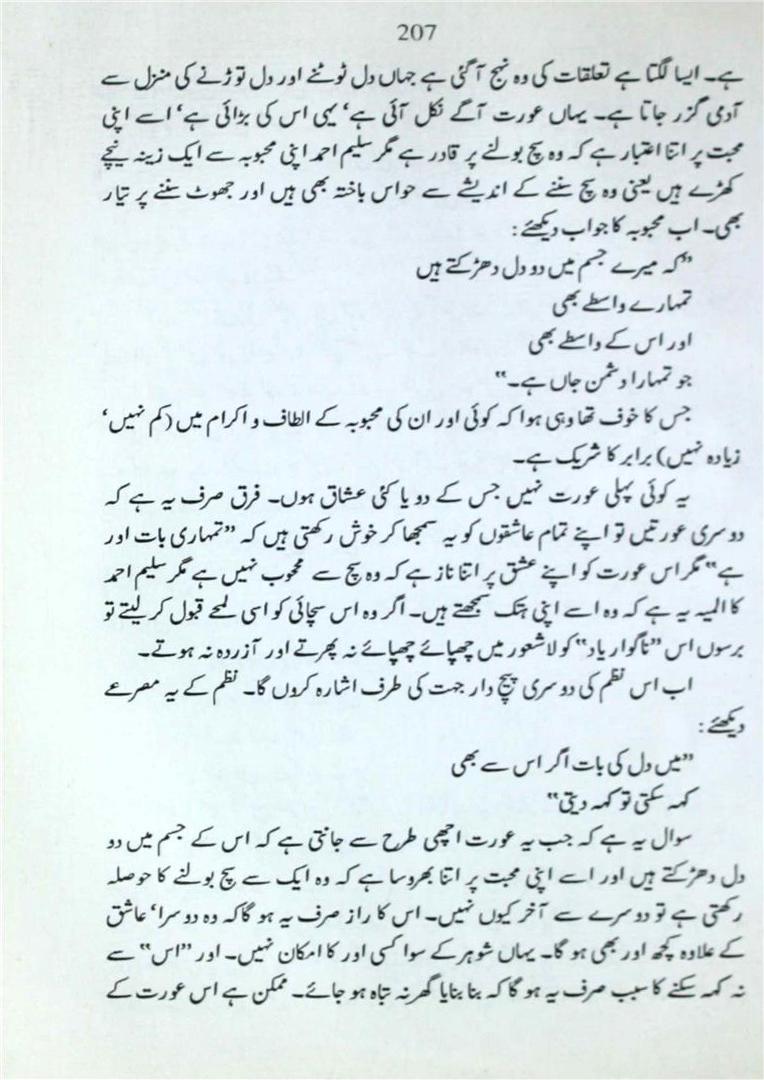 207
ہے۔ ایسا لگتا ہے تعلقات کی وہ نہج آ گئی ہے جہاں دل ٹوٹنے اور دل توڑنے کی منزل سے
آدمی گزر جاتا ہے۔ یہاں عورت آگے نکل آئی ہے‘ یہی اس کی بڑائی ہے‘ اسے اپنی
محبت پر اتنا اعتبار ہے کہ وہ سچ بولنے پر قادر ہے مگر سلیم احمد اپنی محبوبہ سے ایک زینہ نیچے
کھڑے ہیں یعنی وہ سچ سننے کے اندیشے سے حواس باختہ بھی ہیں اور جھوٹ سننے پر تیار
بھی۔ اب محبوبہ کا جواب دیکھئے:
”کہ میرے جسم میں دو دل دھڑکتے ہیں
تمہارے واسطے بھی
اور اس کے واسطے بھی
جو تمہارا دشمن جاں ہے۔“
جس کا خوف تھا وہی ہوا کہ کوئی اور ان کی محبوبہ کے الطاف و اکرام میں (کم نہیں‘
زیادہ نہیں) برابر کا شریک ہے۔
یہ کوئی پہلی عورت نہیں جس کے دو یا کئی عشاق ہوں۔ فرق صرف یہ ہے کہ
دوسری عورتیں تو اپنے تمام عاشقوں کو یہ سمجھا کر خوش رکھتی ہیں کہ ”تمہاری بات اور
ہے“ مگر اس عورت کو اپنے عشق پر اتنا ناز ہے کہ وہ سچ سے محجوب نہیں ہے مگر سلیم احمد
کا المیہ یہ ہے کہ وہ اسے اپنی ہتک سمجھتے ہیں۔ اگر وہ اس سچائی کو اسی لمحے قبول کر لیتے تو
برسوں اس ”ناگوار یاد“ کو لاشعور میں چھپائے چھپائے نہ پھرتے اور آزردہ نہ ہوتے۔
اب اس نظم کی دوسری پیچ دار جہت کی طرف اشارہ کروں گا۔ نظم کے یہ مصرعے
دیکھئے:
”میں دل کی بات اگر اس سے بھی
کہہ سکتی تو کہہ دیتی“
سوال یہ ہے کہ جب یہ عورت اچھی طرح سے جانتی ہے کہ اس کے جسم میں دو
دل دھڑکتے ہیں اور اسے اپنی محبت پر اتنا بھروسا ہے کہ وہ ایک سے سچ بولنے کا حوصلہ
رکھتی ہے تو دوسرے سے آخر کیوں نہیں۔ اس کا راز صرف یہ ہو گا کہ وہ دوسرا‘ عاشق
کے علاوہ کچھ اور بھی ہو گا۔ یہاں شوہر کے سوا کسی اور کا امکان نہیں۔ اور ”اس“ سے
نہ کہہ سکنے کا سبب صرف یہ ہو گا کہ بنا بنایا گھر نہ تباہ ہو جائے۔ ممکن ہے اس عورت کے